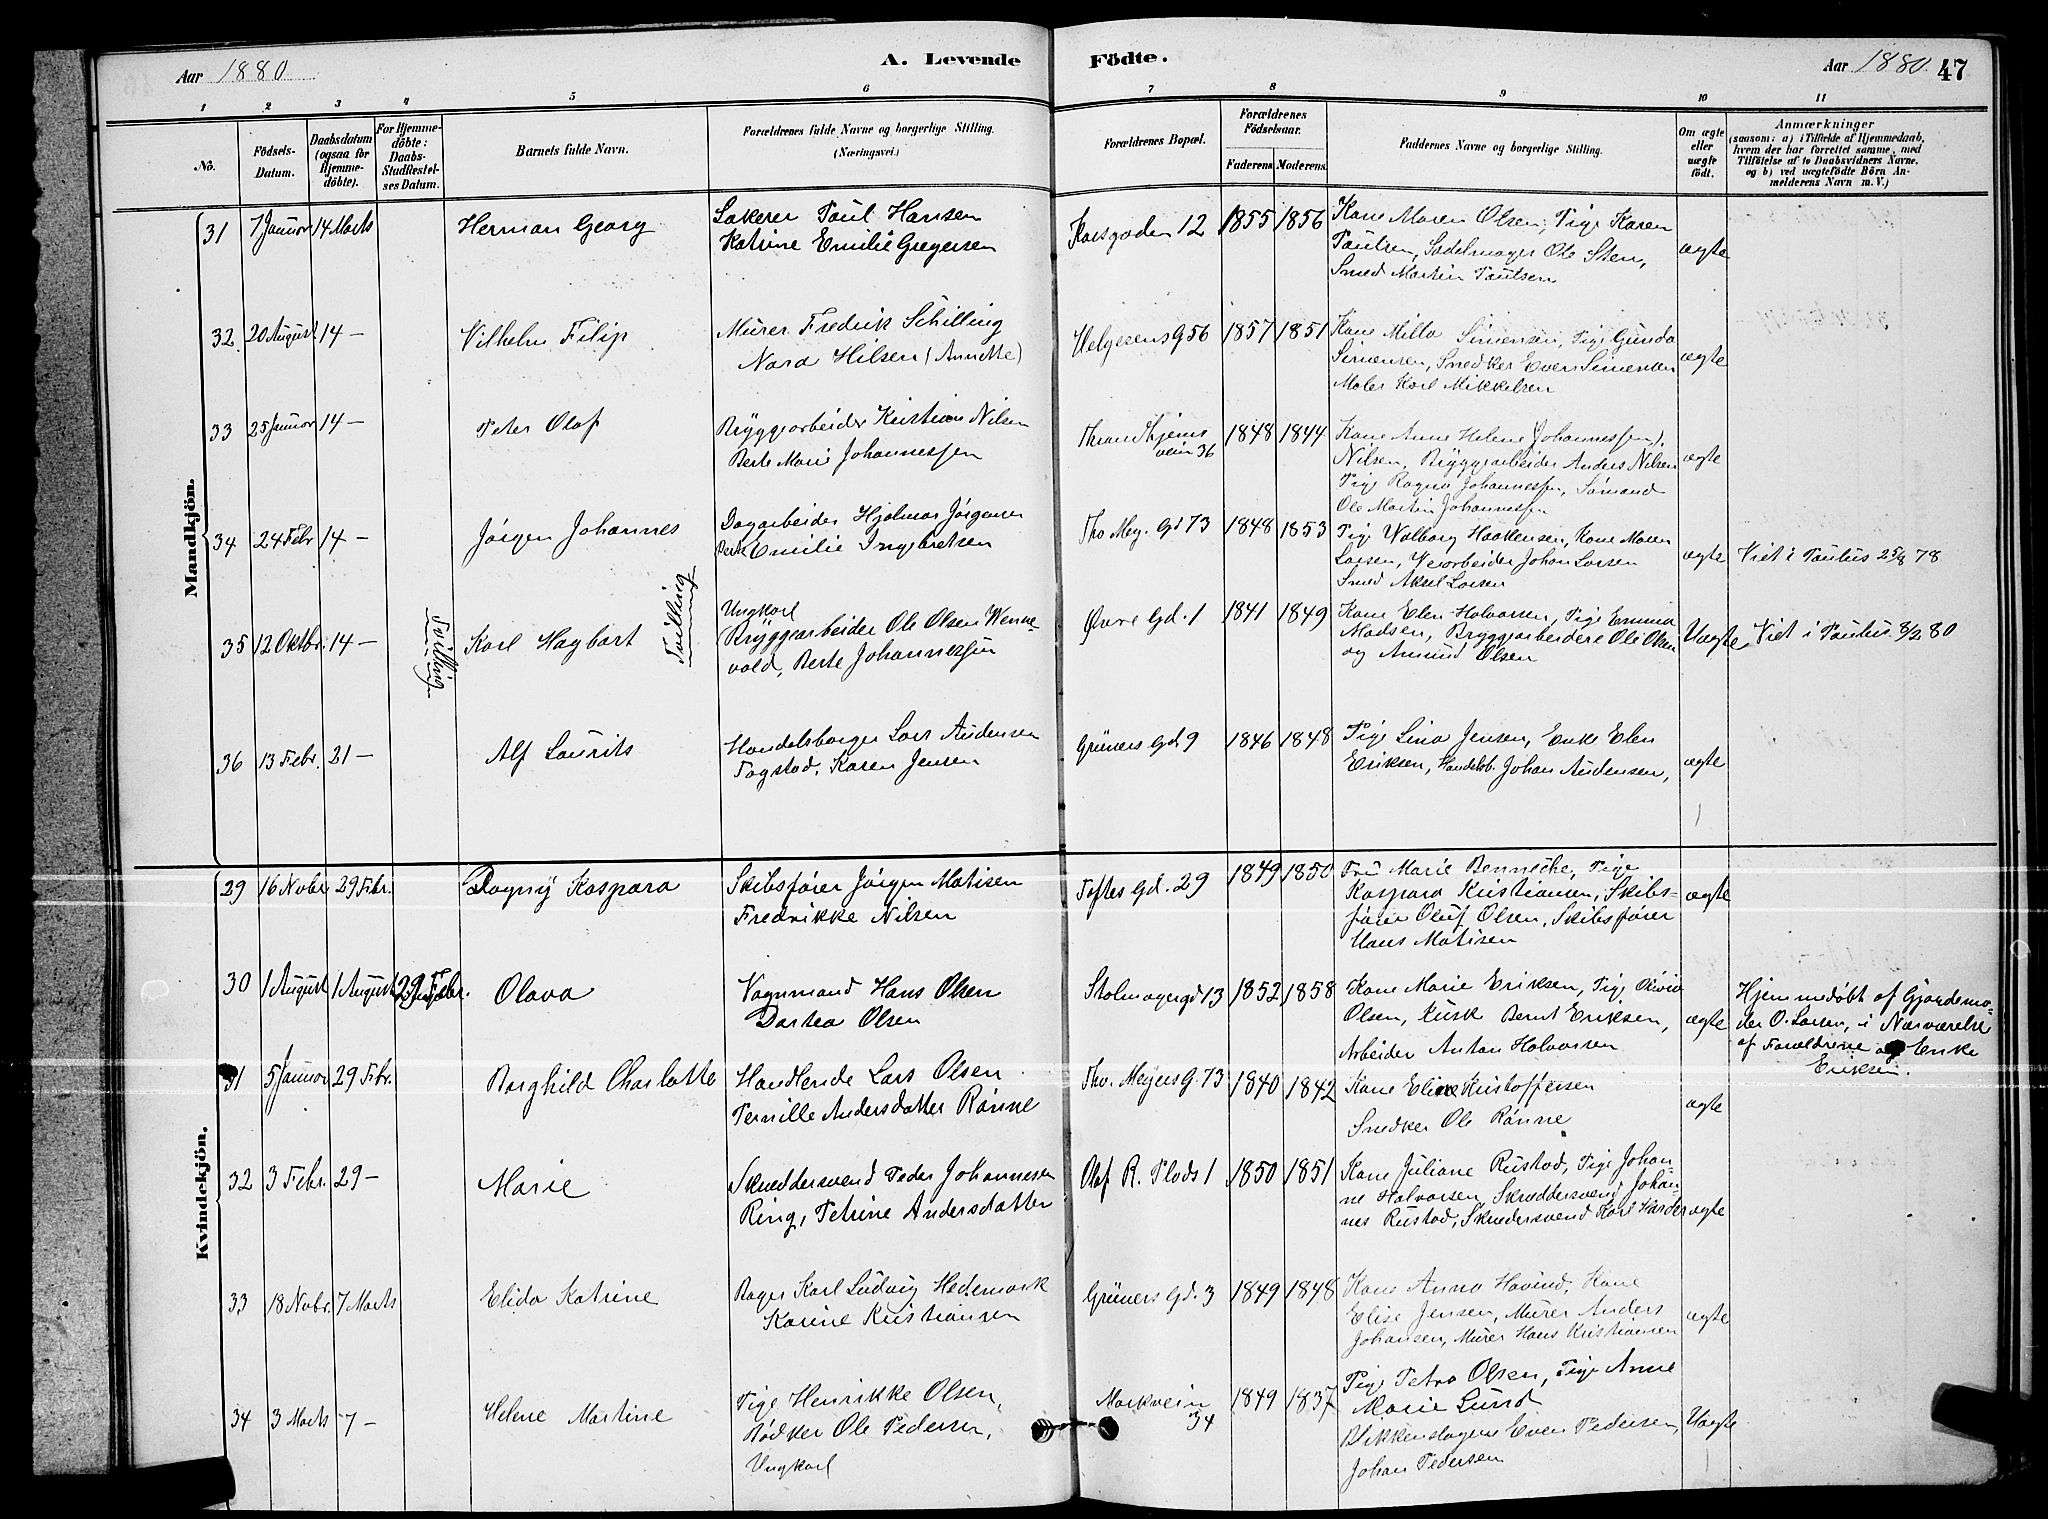 Aar 1880
A. Levende
Födte.
Aar 1880
47
1 2 3 4 5 6 7 8 9 10 11
No.
Födsels-
Datum.
Daabsdatum
(ogsaa for
Hjemme-
döbte).
For Hjemme-
döbte:
Daabs-
Stadfæstel-
ses Datum.
Barnets fulde Navn.
Forældrenes fulde Navne og borgerlige Stilling.
(Næringsvei.)
Forældrenes Bopæl.
Forældrenes
Födselsaar.
Faderens. Moderens.
Faddernes Navne og borgerlige Stilling.
Om ægte
eller
uægte
født.
Anmærkninger
(saasom: a) i Tilfælde af Hjemmedaab,
hvem der har forrettet samme, med
Tilföielse af to Daabsvidners Navne.
og b) ved uægtefödte Börn An-
melderens Navn m. V.)
Mandkjön.
31 7 Januar 14 Marts
Herman Georg
Lakerer Paul Hansen
Katrine Emilie Gregersen
Korsgaden 12 1855 1856
Kone Maren Olsen, Pige Karen
Paulsen, Sadelmager Ole Sten,
Smed Martin Paulsen
ægte
32. 20 August. 14 —
Vilhelm Filip
Murer Fredrik Schilling
Nara Hilsen (Annette)
Helgesens G 56 1857 1851
Kone Milla Simensen, Pige Gunda
Simensen, Snedker Even Simensen
Maler Karl Mikkelsen
ægte
33 25 Januar 14 —
Peter Olaf
Bryggearbeider Kristian Nilsen
Berte Marie Johannessen
Throndhjems
vein 36
1848 1844
Kone Anne Helene (Johannessen),
Nilsen, Bryggearbeider Anders Nilsen
Pige Ragna Johannessen, Sømand
Ole Martin Johannessen
ægte
34 24 Febr 14 —
Jørgen Johannes
Dagarbeider Hjalmar Jørgensen
Berte Emilie Ingebretsen
Tho Mey. Gd 73 1848 1853
Pige Valborg Haakensen, Kone Maren
Larsen, Veiarbeider Johan Larsen
Smed Aksel Larsen
ægte
Viet i Paulus 25/8 78
35 12 Oktbr. 14 —
Tvilling
Karl Hagbart
Tvilling
Ungkarl
Bryggearbeider Ole Olsen Wenne-
vold, Berte Johannessen
Øvre Gd. 1 1841 1849
Kone Elen Halvorsen, Pige Emma
Madsen, Bryggearbeidere Ole Olsen
og Amund Olsen
Uægte
Viet i Paulus 8/2 80
36 13 Febr. 21 —
Alf Laurits
Handelsborger Lars Audensen
Fagstad, Karen Jensen
Grüners Gd 9 1846 1848
Pige Lina Jensen, Enke Elen
Eriksen, Handelsb. Johan Audensen,
ægte
Kvindekjön.
29 16 Novbr 29 Febr.
Dagny Kaspara
Skibsfører Jørgen Matisen
Fredrikke Nilsen
Toftes Gd. 29 1849 1850
Fru Marie Benneche, Pige
Kaspara Kristiansen, Skibs-
fører Oluf Olsen, Skibsfører
Hans Matisen
ægte
30 1 August 1 August 29 Febr.
Olava
Vognmand Hans Olsen
Dortea Olsen
Stolmagergd 13 1852 1858
Kone Marie Eriksen, Pige Olivia
Olsen, Kusk Bernt Eriksen,
Arbeider Anton Halvorsen
ægte
Hjemmedøbt af Gjordemo-
der O. Larsen, i Nærværelse
af Forældrene og Enke
Eriksen.
31 5 Januar 29 Febr.
Borghild Charlotte
Handlende Lars Olsen
Pernille Andersdatter Rønne
Thv. Meyers G. 73 1840 1842
Kone Eline Kristoffersen
Snedker Ole Rønne
ægte
32 3 Febr. 29 —
Marie
Skræddersvend Peder Johannesen
Ring, Petrine Andersdatter
Olaf R. Plads 1 1850 1851
Kone Juliane Rustad, Pige Johan-
ne Halvorsen, Skræddersvend Johan-
nes Rustad, Skræddersvend Karl Harder
ægte
33 18 Novbr. 7 Marts
Elida Katrine
Bager Karl Ludvig Hedemark
Karine Kristiansen
Grüners Gd. 3 1849 1848
Kone Anna Havind, Kone
Elise Jensen, Murer Anders
Johansen, Murer Hans Kristiansen
ægte
34 3 Marts 7 —
Helene Martine
Pige Henrikke Olsen,
Bødker Ole Pedersen,
Ungkarl
Markvein
34
1849 1837
Pige Petra Olsen, Pige Anne
Marie Lund
Blikkenslagere Even Pedersen,
Johan Pedersen
Uægte